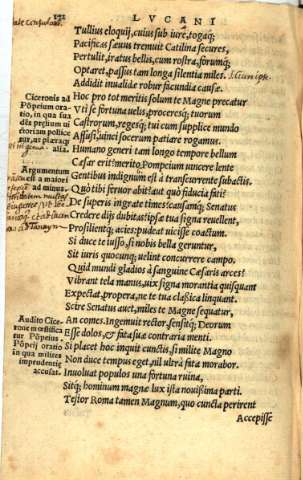 192
LVCANI
Tullius eloquij, cuius sub iure, togaq;
Pacificas sæuus tremuit Catilina secures,
Pertulit, iratus bellis, cum rostra, forumq;
Optaret, passus tam longa silentia miles.
Addidit inualidæ robur facundia causæ.
Hoc pro tot meritis solum te Magne precatur
Vti se fortuna uelis, procеresq; tuorum
Castrorum, regesq; tui cum supplice mundo
Affusi, uinci socerum patiare rogamus.
Humani generi tam longo tempore bellum
Cæsar erit? merito Pompeium uincere lente
Gentibus indignum est à transcurrente subactis.
Quò tibi feruor abijt? aut quò fiducia fati?
De superis ingrate times? causamq; Senatus
Credere dijs dubitas? ipsæ tua signa reuellent,
Prosilientq; acies: pudeat uicisse coactum.
Si duce te iusso, si nobis bella geruntur,
Sit iuris quocunq; uelint concurrere campo.
Quid mundi gladios à sanguine Cæsaris arces?
Vibrant tela manus, uix signa morantia quisquam
Expectat, propera, ne te tua classica linquant.
Scire Senatus auet, miles te Magne sequatur,
An comes. Ingemuit rector, sensitq; Deorum
Esse dolos, & fata suæ contraria menti.
Si placet hoc inquit cunctis, si milite Magno
Non duce tempus eget, nil ultra fata morabor.
Inuoluat populos una fortuna ruina,
Sitq; hominum magnæ lux ista nouissima parti.
Testor Roma tamen Magnum, quo cuncta perirent
Accepisse
Ciceronis ad
Pōpeium ora
tio, in qua sua
dēs prelium ui
ctoriam pollice
tur, ac pleraq;
alia.
Argumentum
est a maiori
ad minus.
Audito Cice
rone mœstifica
tur Pōpeius,
Pōpeij oratio
in qua milites
impendentis
accusat.